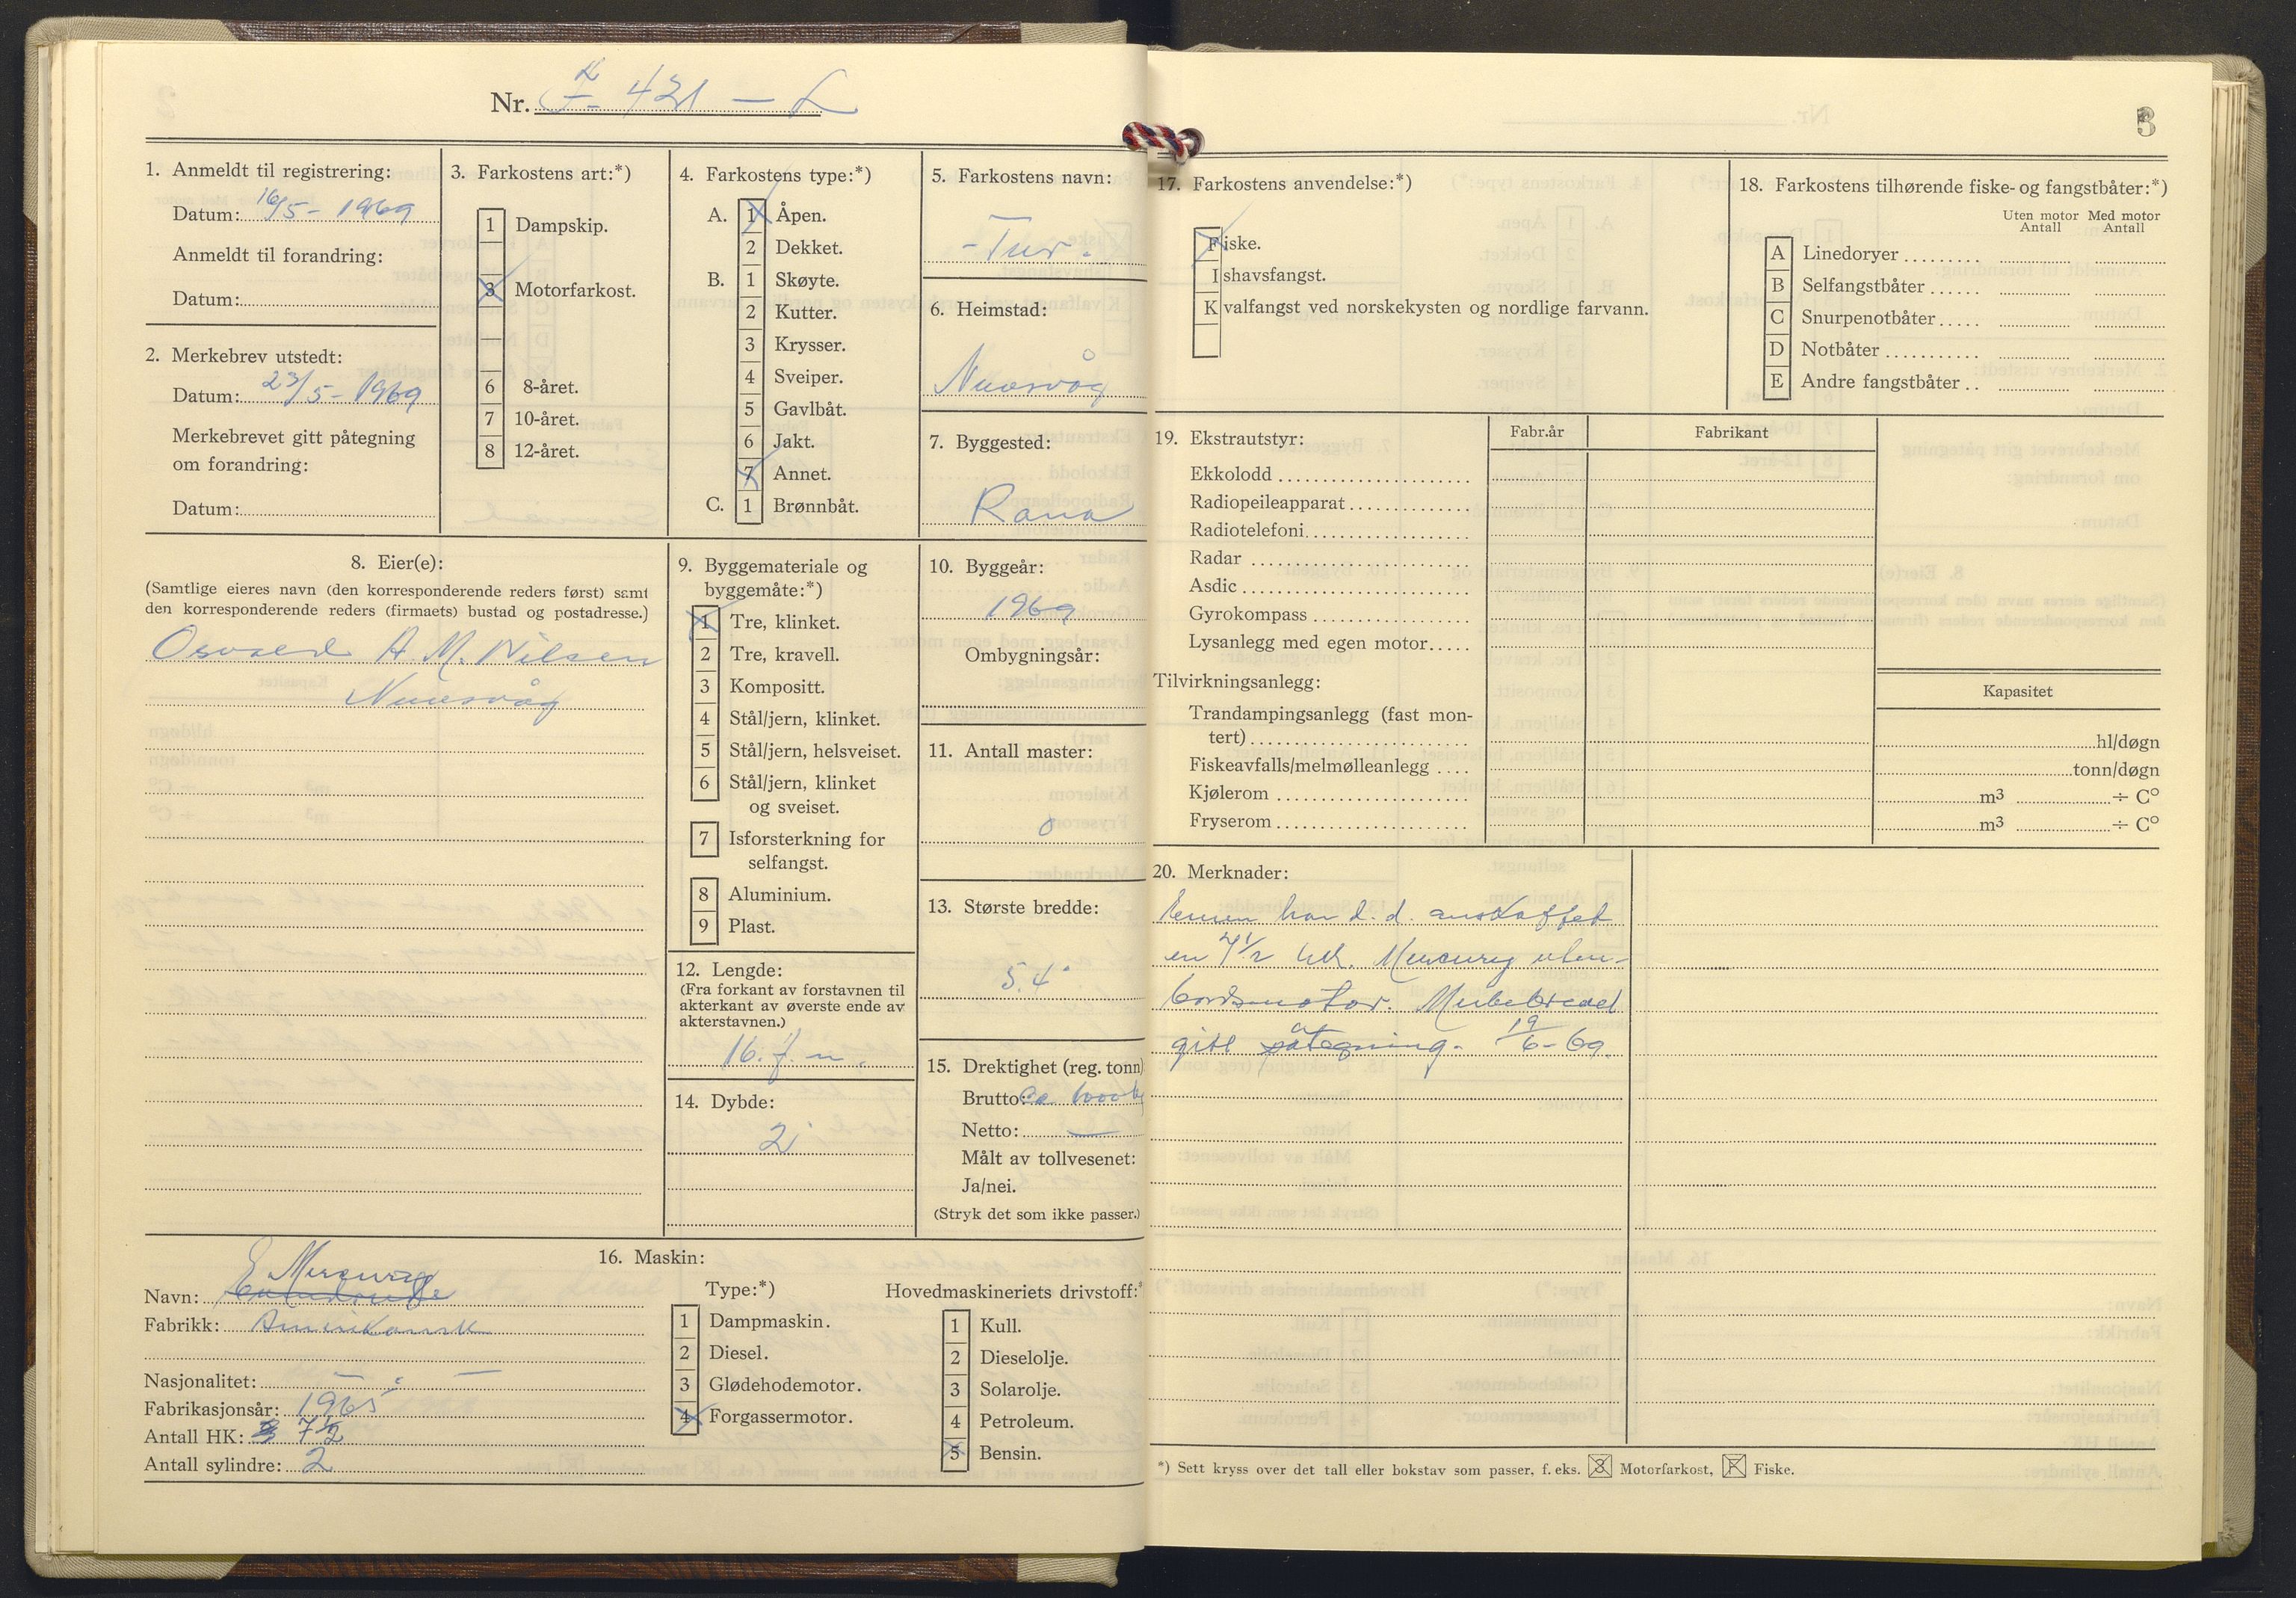 Nr. F 421 — L
3
1. Anmeldt til registrering:
Datum: 16/5 - 1969
Anmeldt til forandring:
Datum:
2. Merkebrev utstedt:
Datum: 23/5 - 1969
Merkebrevet gitt påtegning
om forandring:
Datum:
3. Farkostens art:*)
1 Dampskip.
3 Motorfarkost.
6 8-året.
7 10-året.
8 12-året.
4. Farkostens type:*)
A. 1 Åpen.
2 Dekket.
B. 1 Skøyte.
2 Kutter.
3 Krysser.
4 Sveiper.
5 Gavlbåt.
6 Jakt.
7 Annet.
C. 1 Brønnbåt.
5. Farkostens navn:
- Tur.
6. Heimstad:
Nuvsvåg
7. Byggested:
Rana
8. Eier(e):
(Samtlige eieres navn (den korresponderende reders først) samt
den korresponderende reders (firmaets) bustad og postadresse.)
Osvald A. M. Nilsen
Nuvsvåg
9. Byggemateriale og
byggemåte:*)
1 Tre, klinket.
2 Tre, kravell.
3 Kompositt.
4 Stål/jern, klinket.
5 Stål/jern, helsveiset.
6 Stål/jern, klinket
og sveiset.
7 Isforsterkning for
selfangst.
8 Aluminium.
9 Plast.
10. Byggeår:
1969
Ombygningsår:
11. Antall master:
0
12. Lengde:
(Fra forkant av forstavnen til
akterkant av øverste ende av
akterstavnen.)
16. f. n.
13. Største bredde:
5.4"
14. Dybde:
2'
15. Drektighet (reg. tonn)
Brutto: ca 600 kg
Netto: —
Målt av tollvesenet:
Ja/nei.
(Stryk det som ikke passer.)
16. Maskin:
Mercury
Navn: Evindrude
Fabrikk: Amerikansk
Nasjonalitet: — " —
Fabrikasjonsår: 1965
Antall HK: 7 1/2
Antall sylindre: 2
Type:*)
1 Dampmaskin.
2 Diesel.
3 Glødehodemotor.
4 Forgassermotor.
Hovedmaskineriets drivstoff:*
1 Kull.
2 Dieselolje.
3 Solarolje.
4 Petroleum.
5 Bensin.
17. Farkostens anvendelse:*)
Fiske.
Ishavsfangst.
Kvalfangst ved norskekysten og nordlige farvann.
18. Farkostens tilhørende fiske- og fangstbåter:*)
Uten motor Med motor
Antall Antall
A Linedoryer
B Selfangstbåter
C Snurpenotbåter
D Notbåter
E Andre fangstbåter
19. Ekstrautstyr:
Fabr.år Fabrikant
Ekkolodd
Radiopeileapparat
Radiotelefoni
Radar
Asdic
Gyrokompass
Lysanlegg med egen motor
Tilvirkningsanlegg:
Kapasitet
Trandampingsanlegg (fast mon-
tert) hl/døgn
Fiskeavfalls/melmølleanlegg tonn/døgn
Kjølerom m³ ÷ C°
Fryserom m³ ÷ C°
20. Merknader:
har d.d. anskaffet
en 7 1/2 hk. Mercury uten-
bordsmotor. Merkebrevet
gitt påtegning. 19/6 - 69.
*) Sett kryss over det tall eller bokstav som passer, f. eks. 3 Motorfarkost, F Fiske.